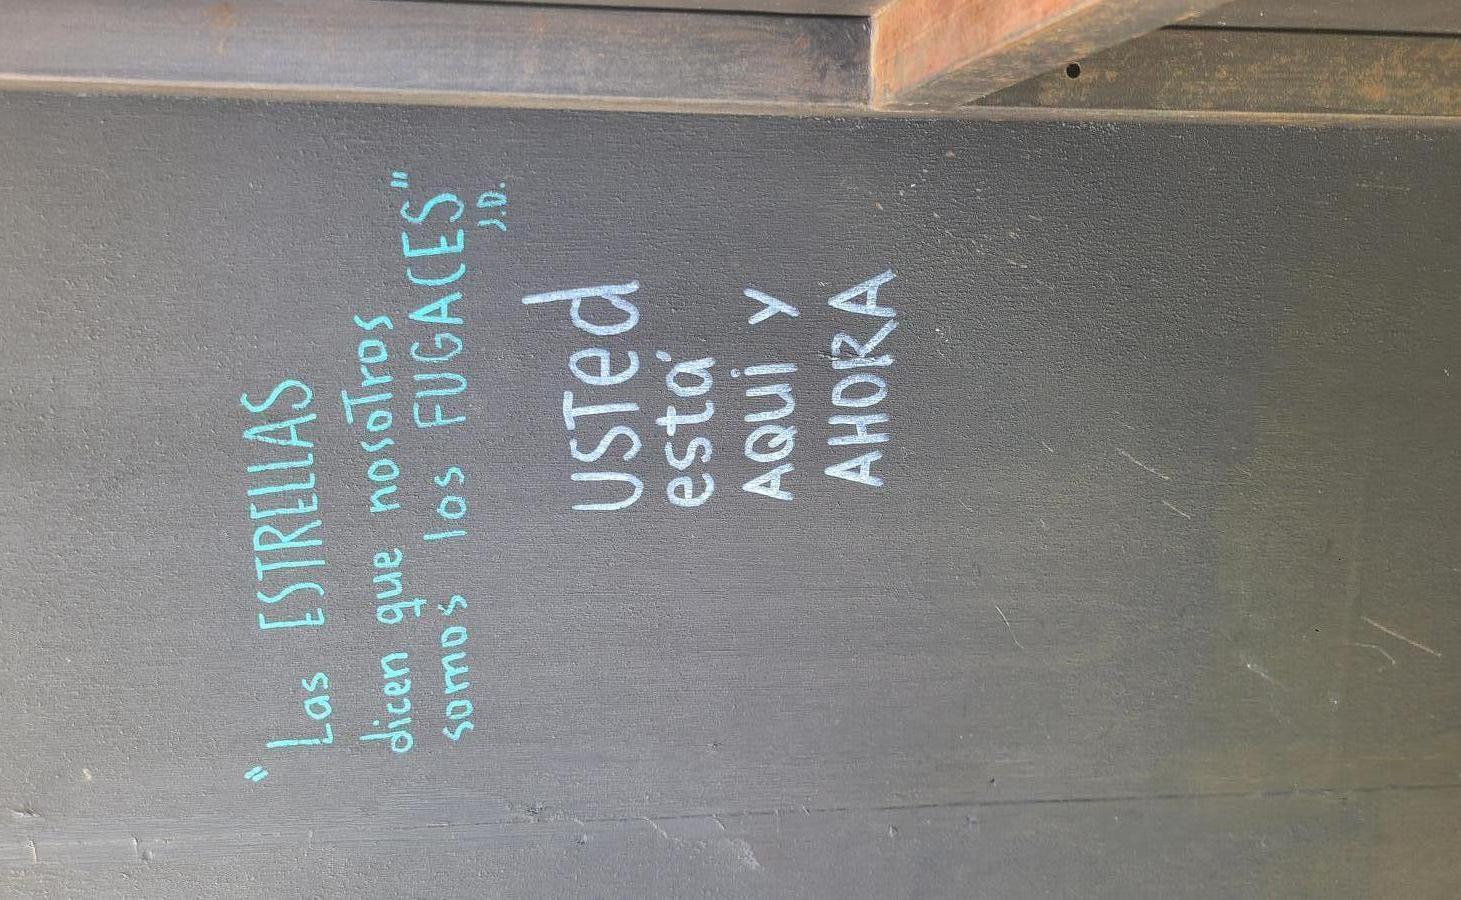 "Las ESTRELLAS
dicen que nosoTros
somos los FUGACES"
J.D.
USTed
está
AQUi y
AHORA